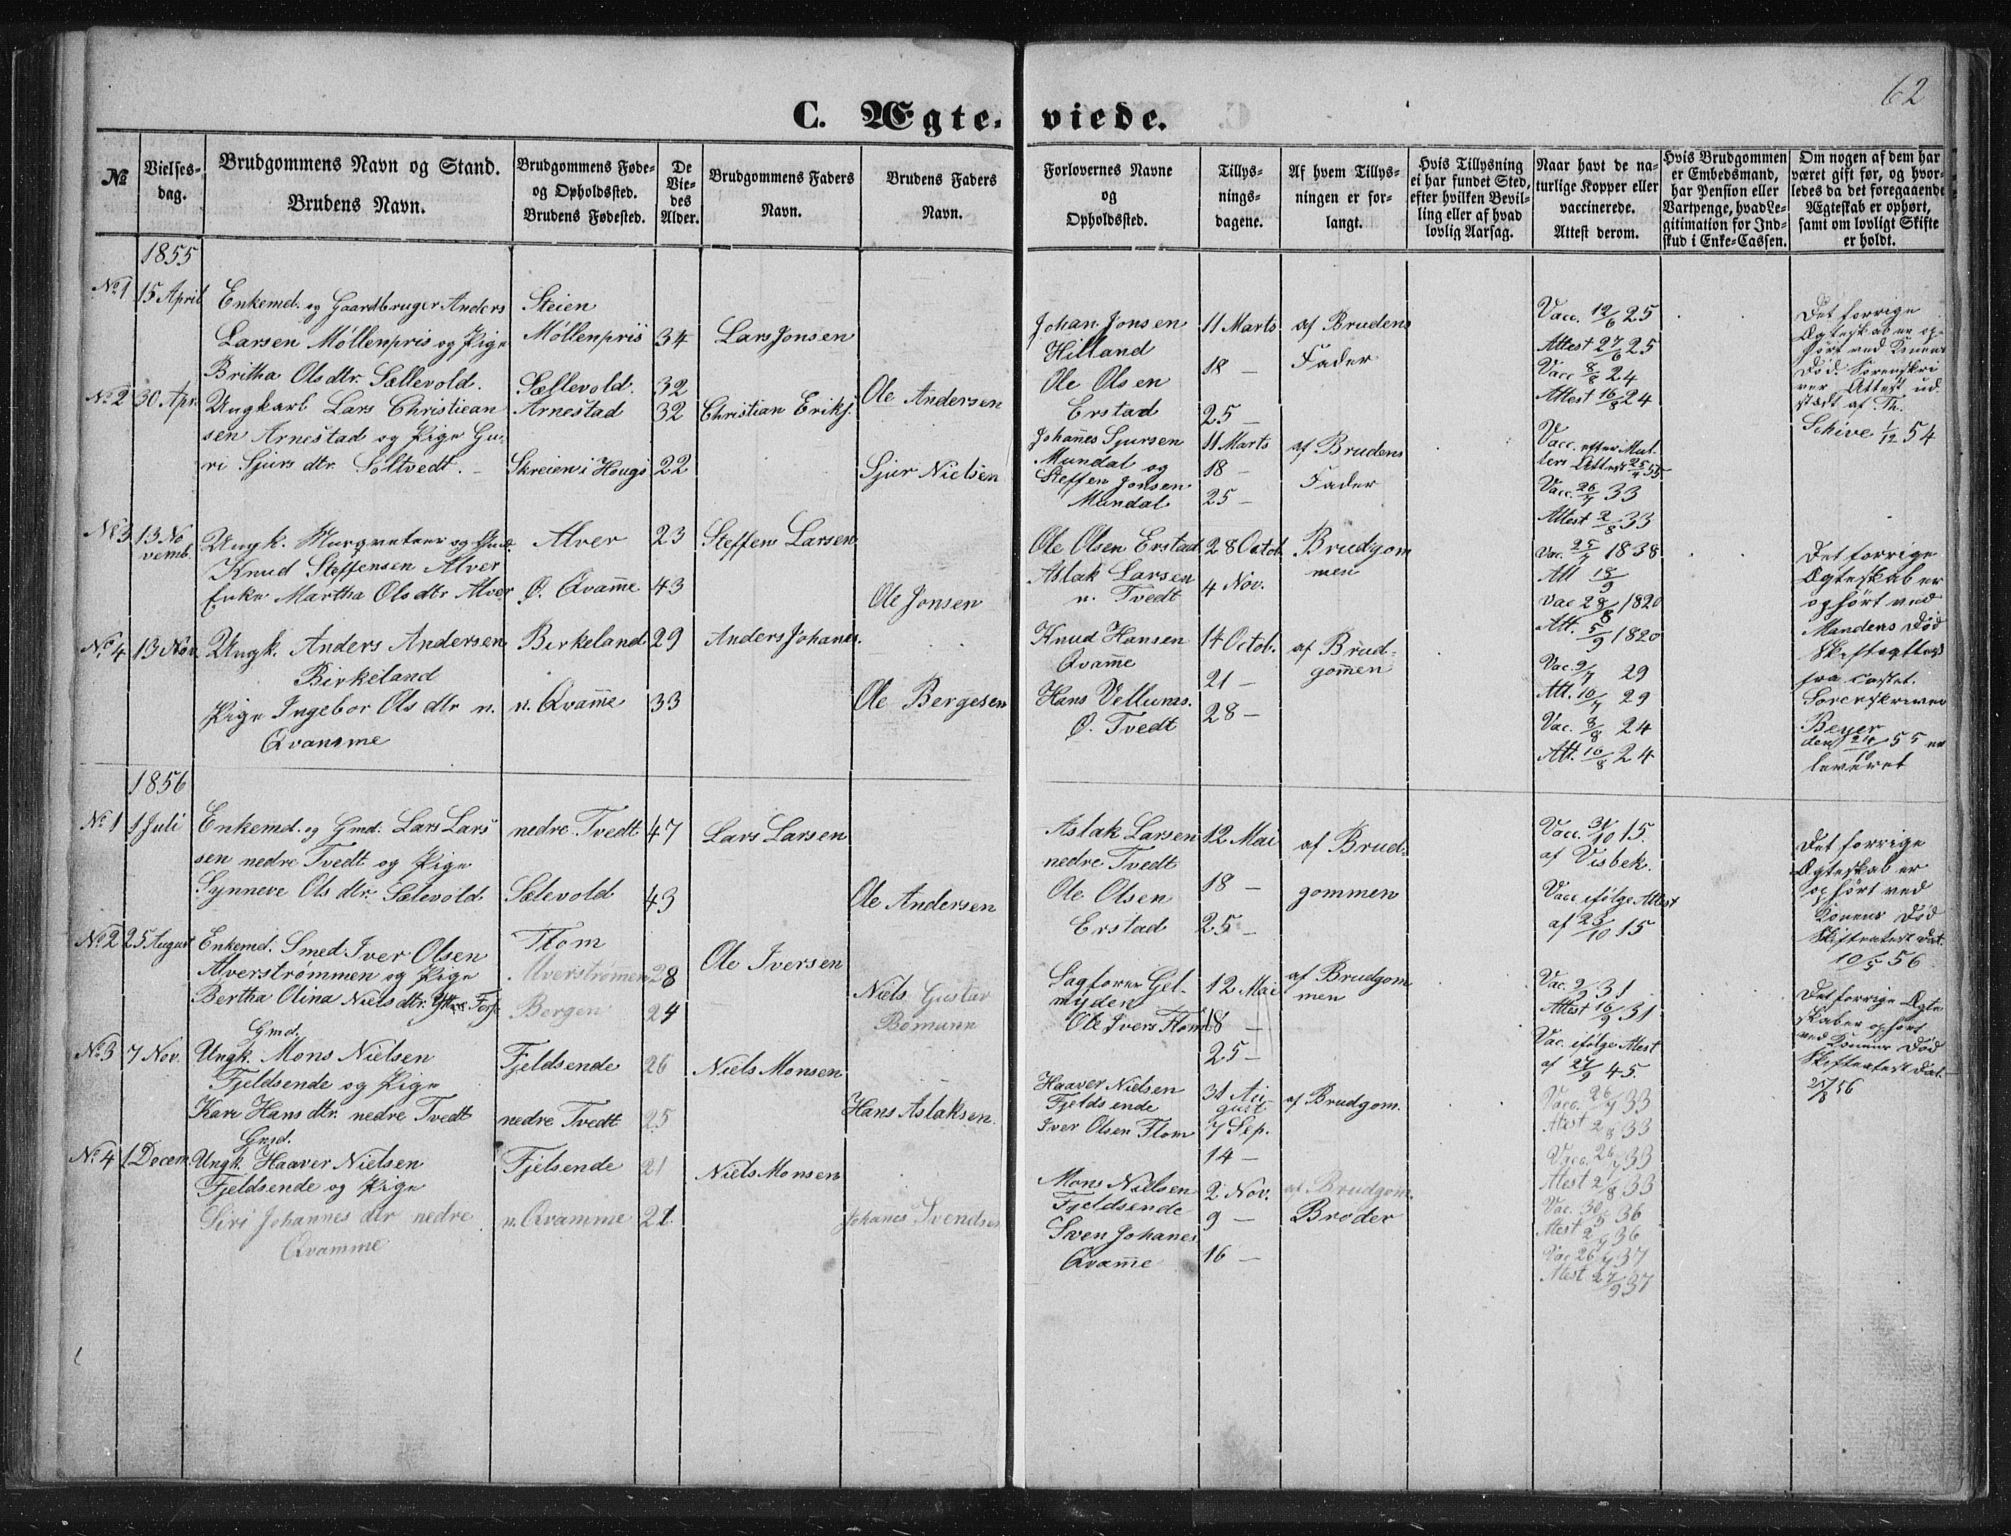 62
C. Ægte- viede.
No
Vielses-
dag.
Brudgommens Navn og Stand.
Brudens Navn.
Brudgommens Føde-
og Opholdssted.
Brudens Fødested.
De
Vie-
des
Alder.
Brudgommens Faders
Navn.
Brudens Faders
Navn.
Forlovernes Navne
og
Opholdssted.
Tillys-
nings-
dagene.
Af hvem Tillys-
ningen er for-
langt.
Hvis Tillysning
ei har fundet Sted,
efter hvilken Bevil-
ling eller af hvad
lovlig Aarsag.
Naar havt de na-
turlige Kopper eller
vaccinerede.
Attest derom.
Hvis Brudgommen
er Embedsmand,
har Pension eller
Vartpenge, hvad Le-
gitimation for Ind-
skud i Enke-Cassen.
Om nogen af dem har
været gift før, og hvor-
ledes da det foregaaende
Ægteskab er ophørt,
samt om lovligt Skifte
er holdt.
1855
No 1 15 April
Enkemd. og Gaardbruger Anders
Larsen Møllenpris og Pige
Britha Olsdtr. Sællevold.
Steien
Møllenpris 34
Sællevold. 32
Lars Jonsen
Ole Andersen
Johan Jonsen
Hilland
Ole Olsen
Erstad
11 Marts
18 —
25 —
af Brudens
Fader
Vacc. 12/6 25
Attest 27/6 25
Vacc 8/8 24
Attest 16/8 24
Det forrige
Ægteskab er op-
hørt ved Konens
Død. Sorenskri
ver Attest ud
stædt af Th.
Schive 1/12 54
No 2 30 Apr.
Ungkarl Lars Christian
sen Arnestad og Pige Gu-
ri Sjurs dtr. Soltvedt. —
Arnestad 32
Skreien i Hougs 22
Christian Eriks.
Sjur Nielsen
Johanes Sjursen
Mundal og
Steffen Jonsen
Mundal
11 Marts
18 —
25 —
af Brudens
Fader
Vacc. efter Mut-
ters Attest 25/4 55
Vacc. 26/7 33
Attest 2/8 33
No 3 13 No
vemb.
Ungk. Murqveteer og
Knud Steffensen Alver
Enke Martha Olsdtr Alver
Alver 23
Ø. Qvamme 43
Steffen Larsen
Ole Jonsen
Ole Olsen Erstad
Aslak Larsen
n. Tvedt
28 Octob.
4 Nov.
Brudgom
men
Vac. 25/7 1838
Att 18/9
Vac 28/8 1820
Att. 5/9 1820
Det forrige
Ægteskab er
ophørt ved
Mandens Død
Skifteattest
fra
Sorenskriver
Beyer
den 24/10 55 er
leveret
No 4 13 Nov.
Ungk. Anders Andersen
Birkeland
Pige Ingebor Ols dtr n.
Qvamme
Birkeland 29
n. Qvamme 33
Anders Johanes.
Ole Bergesen
Knud Hansen
Qvamme
Hans Vellums.
Ø. Tvedt
14 Octob.
21 —
28 —
af Brud-
gommen
Vac. 9/7 29
Att. 10/7 29
Vac. 8/8 24
Att. 16/8 24
1856
No 1 1 Juli
Enkemd. og Gmd. Lars Lars
sen nedre Tvedt og Pige
Synneve Ols dtr. Sælevold
nedre Tvedt 47
Sælevold 43
Lars Larsen
Ole Andersen
Aslak Larsen
nedre Tvedt
Ole Olsen
Erstad
12 Mai
18 —
25 —
af Brud-
gommen
Vacc. 31/10 15.
af Visbek.
Vacc ifølge Attest
af 23/10 15
Det forrige
Ægteskab er
ophørt ved
Konens Død
Skifteatest dat.
10/5 56
No 2 25 August
Enkemd. Smed Iver Olsen
Alverstrømmen og Pige
Bertha Olina Niels dtr.
Flom
Alverstrømen 28
Bergen 24
Ole Iversen
Niels Gustav
Bomann
Sagfører Gel-
myden
Ole Ivers Flom
12 Mai
18 —
25 —
af Brudgom
men
Vac. 2/9 31
Attest 16/9 31
Vac. ifølge Atest
af 27/9 45.
Det forrige Ægte
skab er ophørt
ved Konens Død
Skifteatest dat.
25/8 56
No 3 7 Nov.
Gmd.
Ungk. Mons Nielsen
Fjeldsende og Pige
Kari Hans dtr. nedre Tvedt
Fjeldsende 26
nedre Tvedt 25
Niels Monsen
Hans Aslaksen.
Haaver Nielsen
Fjeldsende
Iver Olsen Flom
31 Au-
gust
7 Sep.
14 —
af Brudgom.
Vacc. 26/7 33
Atest 2/8 33
Vacc. 26/7 33
Atest 2/8 33
No 4 1 Decem.
Gmd.
Ungk. Haaver Nielsen
Fjeldsende og Pige
Siri Johannes dtr nedre
Qvamme
Fjelsende 21
n. Qvamme 21
Niels Monsen
Johanes Svendsen
Mons Nielsen
Fjeldsende
Sven Johanes
Qvamme
2 Nov.
9 —
16 —
af Brudgom.
Broder
Vac. 30/5 36
Atest 2/7 36
Vac 26/7 37
Atest 27/9 37